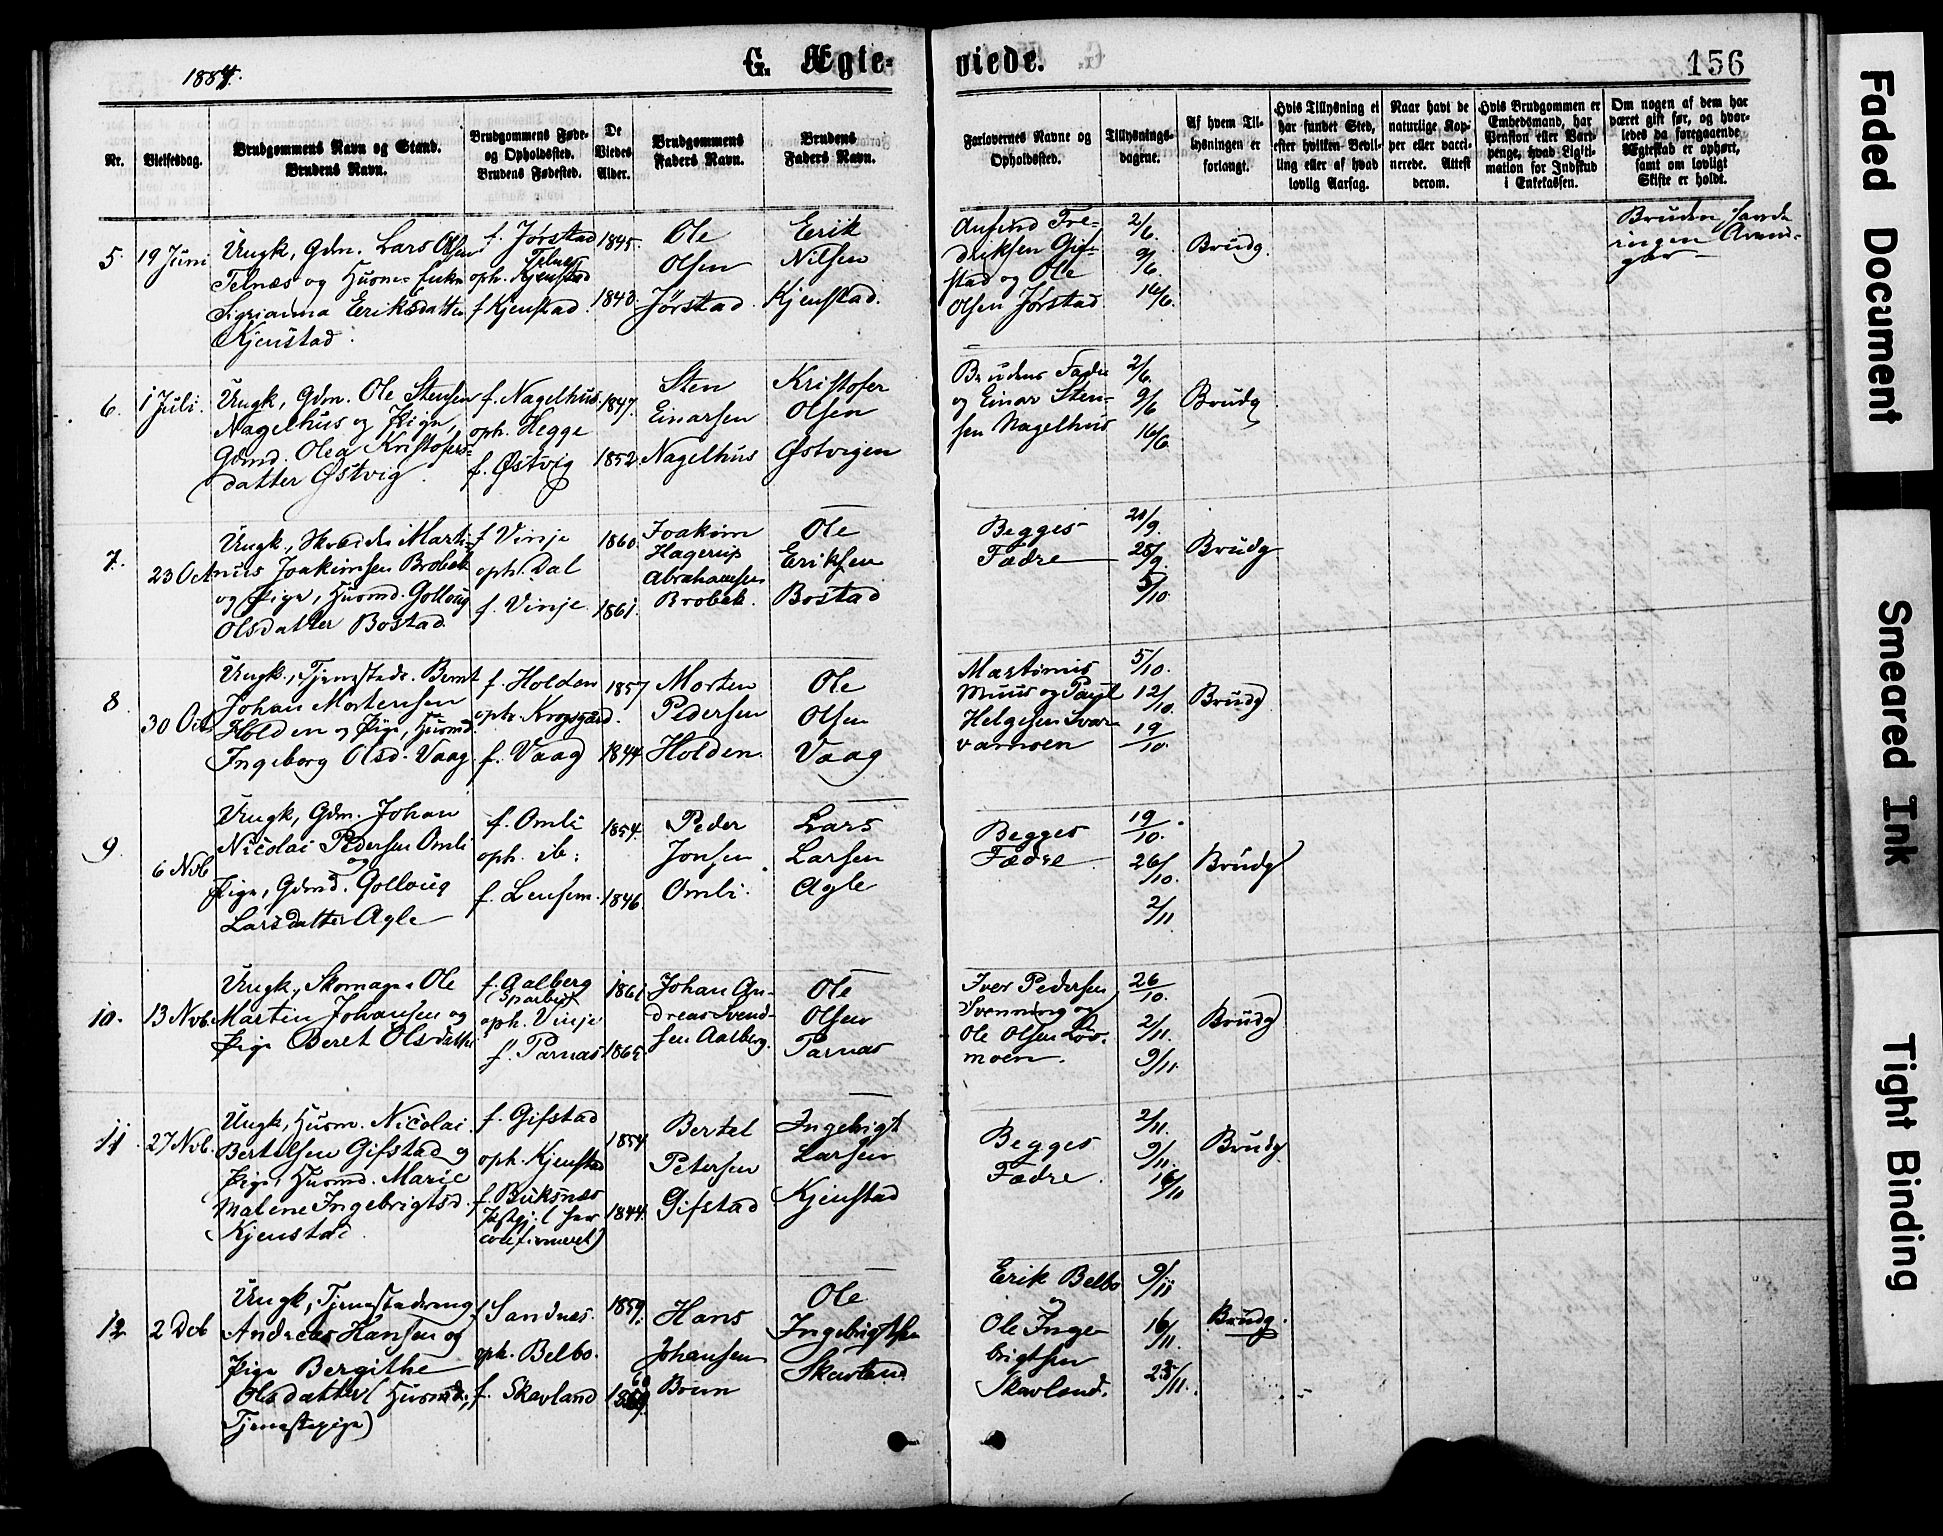 1884.
G. Ægte-
viede.
156
Nr.
Vielsesdag.
Brudgommens Navn og Stand.
Brudens Navn.
Brudgommens Føde-
og Opholdssted.
Brudens Fødested.
De
Viedes
Alder.
Brudgommens
Faders Navn.
Brudens
Faders Navn.
Forlovernes Navne og
Opholdssted.
Tillysnings-
dagene.
Af hvem Til-
lysningen er
forlangt.
Hvis Tillysning ei
har fundet Sted,
efter hvilken Bevil-
ling eller af hvad
lovlig Aarsag.
Naar havt de
naturlige Kop-
per eller vacci-
nerede. Attest
derom.
Hvis Brudgommen er
Embedsmand, har
Pension eller Vart-
penge, hvad Legiti-
mation for Indskud
i Enkekassen.
Om nogen af dem har
været gift før, og hvor-
ledes da foregaaende
Ægteskab er ophørt,
samt om lovligt
Skifte er holdt.
5.
19 Juni
Ungk, Gdm. Lars Olsen
Telnæs og Husm= Enke
Sigrianna Eriksdatter
Kjenstad.
f. Jørstad
Telnes
oph. Kjenstad
f Kjenstad.
1845.
1843.
Ole
Olsen
Jørstad
Erik
Nilsen
Kjenstad.
Anfind Fre-
driksen Gif-
stad og Ole
Olsen Jørstad
2/6.
9/6.
16/6.
Brudg
Bruden havde
ingen
6.
1 Juli.
Ungk, Gdm. Ole Stensen
Nagelhus og Pigen,
Gdmd. Olea Kristofers-
datter Østvig.
f. Nagelhus.
oph. Hegge
f. Østvig
1847.
1852
Sten
Einarsen
Nagelhus
Kristofer
Olsen
Østvigen
Brudens Fader
og Einar Sten-
sen Nagelhus
2/6.
9/6
16/6.
Brudg
7.
23 Oct
Ungk, Marti-
nus Joakimsen Brobak
og Pige, Husmd. Gollaug
Olsdatter Bostad.
f Vinje
oph. Dal
f. Vinje
1860.
1861.
Joakim
Hagerup
Abrahamsen
Brobak.
Ole
Eriksen
Bostad
Begges
Fædre
21/9.
28/9.
5/10.
Brudg
8
30 Oct
Ungk., Tjenestedr. Bernt
Johan Mortensen
Holden og Pige, Husmd.
Ingeborg Olsd. Vaag
f. Holden
oph. Krogsgaard.
f. Vaag
1857
1844
Morten
Pedersen
Holden.
Ole
Olsen
Vaag
Martinus
Muus og Paul
Helgesen Svar-
vamoen
5/10.
12/10.
19/10.
Brudg.
9
6 Nvb
Ungk, Gdm. Johan
Nicolai Pedersen Omli
og
Pige, Gdmd. Gollaug
Larsdatter Agle
f. Omli
oph. ib:
f. Lensem.
1854.
1846.
Peder
Jonsen
Omli.
Lars
Larsen
Agle
Begges
Fædre
19/10.
26/10.
2/11.
Brudg
10.
13 Nvb.
Ungk., Skomager Ole
Martin Johansen og
Pige Beret Olsdatter
f. Aalberg
(Sparbu)
oph. Vinje
f. Parnas
1861
1865
Johan An-
dreas Svend-
sen Aalberg.
Ole
Olsen
Parnas
Iver Pedersen
Svenning og
Ole Olsen Løs-
moen.
26/10.
2/11.
9/11.
Brudg
11.
27 Nvb.
Ungk, Husm. Nicolai
Bertelsen Gifstad og
Pige, Husmd. Marie
Malene Ingebrigtsd
Kjenstad.
f. Gifstad
oph. Kjenstad
f. Buksnæs
Præstgj. (her
confirmeret)
1854
1844.
Bertel
Petersen
Gifstad
Ingebrigt
Larsen
Kjenstad
Begges
Fædre.
2/11.
9/11.
16/11
Brudg.
12
2 Dcb
Ungk, Tjenestedreng
Andreas Hansen og
Pige Bergithe
Olsdatter (Husmd.,
Tjenestepige)
f Sandnes.
oph. Belbo.
f. Skavland
1859.
60
Hans
Johansen
Ole
Ingebrigtsen
Skavland
Erik Belbo
og
Ole Inge-
brigtsen
Skavland.
9/11
16/11.
23/11.
Brudg.
Faded Document
Smeared Ink
Tight Binding